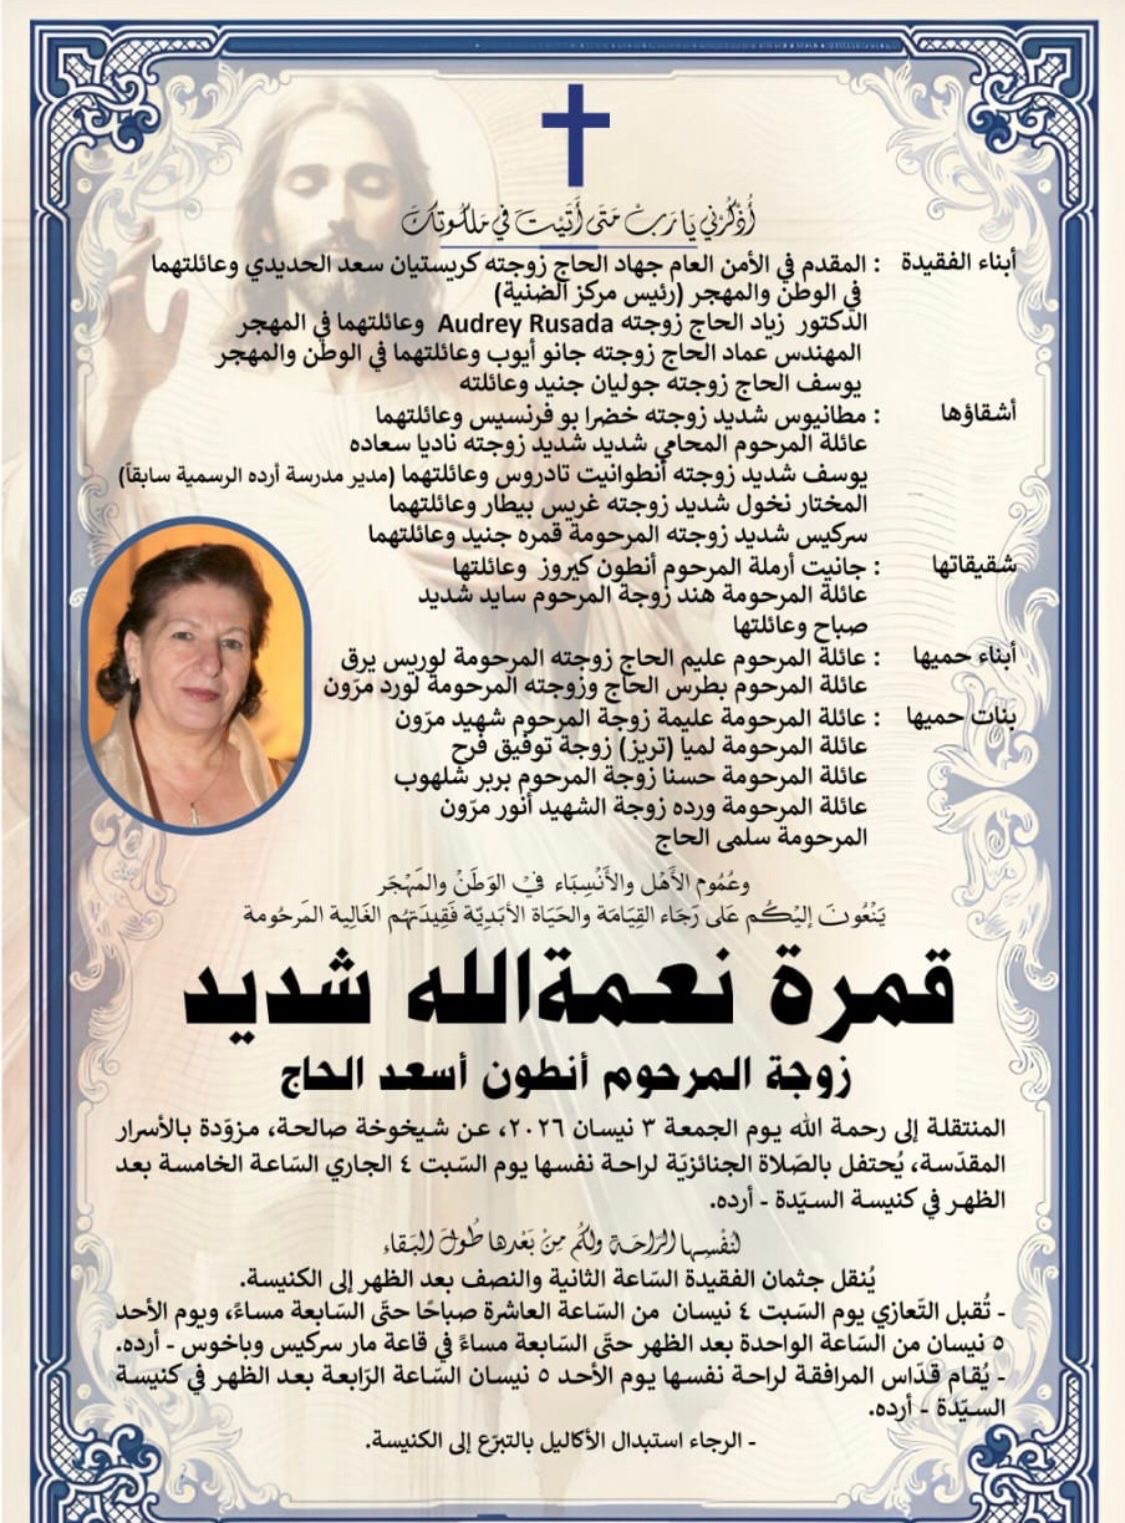 أُذْكُرْنِي يَا رَبّ مَتَى أَتَيْتَ فِي مَلَكُوتِكَ
أبناء الفقيدة : المقدم في الأمن العام جهاد الحاج زوجته كريستيان سعد الحديدي وعائلتهما
في الوطن والمهجر (رئيس مركز الضنية)
الدكتور زياد الحاج زوجته Audrey Rusada وعائلتهما في المهجر
المهندس عماد الحاج زوجته جانو أيوب وعائلتهما في الوطن والمهجر
يوسف الحاج زوجته جوليان جنيد وعائلته
أشقاؤها : مطانيوس شديد زوجته خضرا بو فرنسيس وعائلتهما
عائلة المرحوم المحامي شديد شديد زوجته ناديا سعاده
يوسف شديد زوجته أنطوانيت تادروس وعائلتهما (مدير مدرسة أرده الرسمية سابقاً)
المختار نخول شديد زوجته غريس بيطار وعائلتهما
سركيس شديد زوجته المرحومة قمره جنيد وعائلتهما
شقيقاتها : جانيت أرملة المرحوم أنطون كيروز وعائلتها
عائلة المرحومة هند زوجة المرحوم سايد شديد
صباح وعائلتها
أبناء حميها : عائلة المرحوم عليم الحاج زوجته المرحومة لوريس يرق
عائلة المرحوم بطرس الحاج وزوجته المرحومة لورد مرّون
بنات حميها : عائلة المرحومة عليمة زوجة المرحوم شهيد مرّون
عائلة المرحومة لميا (تريز) زوجة توفيق فرح
عائلة المرحومة حسنا زوجة المرحوم بربر شلهوب
عائلة المرحومة ورده زوجة الشهيد أنور مرّون
المرحومة سلمى الحاج
وعُمُوم الأَهْل والأَنْسِبَاء فِي الوَطَنْ والمَهْجَر
يَنْعُونَ إليْكُم عَلى رَجَاء القِيَامَة والحَيَاة الأبَدِيّة فَقِيدَتهُم الغَالية المَرحُومة
قمرة نعمةالله شديد
زوجة المرحوم أنطون أسعد الحاج
المنتقلة إلى رحمة الله يوم الجمعة ٣ نيسان ٢٠٢٦، عن شيخوخة صالحة، مزوّدة بالأسرار
المقدّسة، يُحتفل بالصّلاة الجنائزيّة لراحة نفسها يوم السّبت ٤ الجاري السّاعة الخامسة بعد
الظهر في كنيسة السيّدة - أرده.
لنَفْسِها الرّاحَة ولكُم مِنْ بَعْدها طُولَ البَقاء
يُنقل جثمان الفقيدة السّاعة الثانية والنصف بعد الظهر إلى الكنيسة.
- تُقبل التّعازي يوم السّبت ٤ نيسان من السّاعة العاشرة صباحًا حتّى السّابعة مساءً، ويوم الأحد
٥ نيسان من السّاعة الواحدة بعد الظهر حتّى السّابعة مساءً في قاعة مار سركيس وباخوس - أرده.
- يُقام قدّاس المرافقة لراحة نفسها يوم الأحد ٥ نيسان السّاعة الرّابعة بعد الظهر في كنيسة
السيّدة - أرده.
- الرجاء استبدال الأكاليل بالتبرّع إلى الكنيسة.